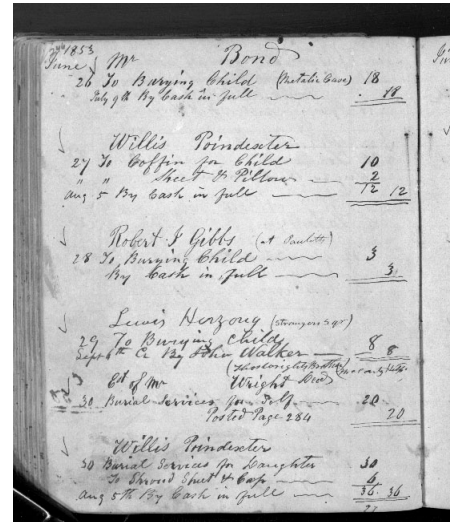 1853
June } Mr Bond
26 To Burying Child (Metalic Case) 18
July 9th By Cash in full 18
Willis Poindexter
27 To Coffin for Child 10
" " Sheet & Pillow 2
Aug 5 By Cash in full 12 12
Robert J Gibbs (at Pauletts)
28 To Burying Child 3
By Cash in full 3
Lewis Herzong (Strangers sqr)
29 To Burying Child 8
Sept 6th By John Walker 8
Est of Mr Wright Decd
30 Burial Services for Self 20
Posted Page 284 20
Willis Poindexter
30 Burial Services for Daughter 30
To Shroud Sheet & Cap 6
Aug 5th By Cash in full 36 36